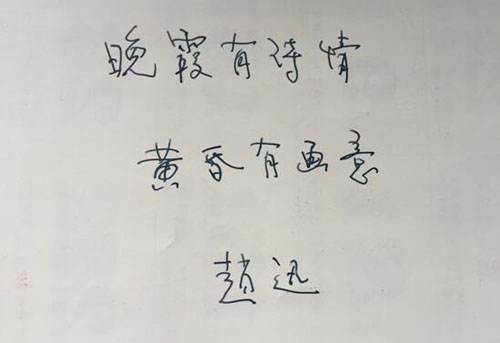 晚霞有诗情
黄昏有画意
趙迅